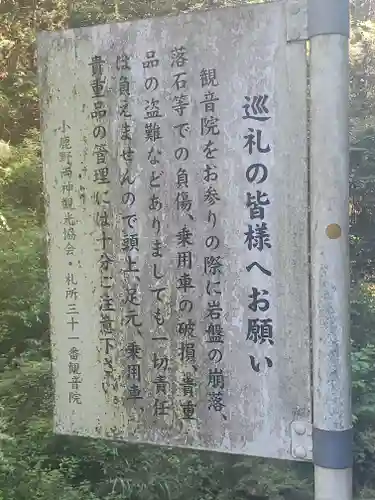 巡礼の皆様へお願い
観音院をお参りの際に岩盤の崩落、
落石等での負傷、乗用車の破損、貴重
品の盗難などありましても一切責任
は負えませんので頭上、足元、乗用車、
貴重品の管理には十分ご注意下さい
小鹿野両神観光協会・札所三十一番観音院